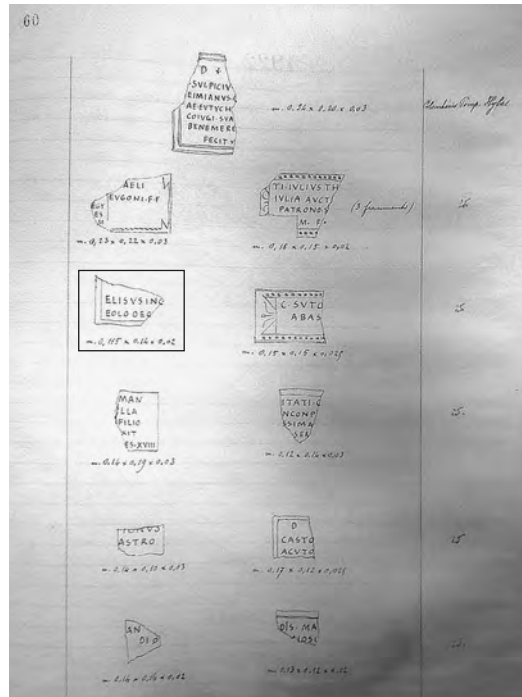 60
D
SVLPICIV
EIMIANVS
AE·EVTYCH
COIVGI·SVA
BENEMERE
FECIT
m. 0,26 x 0,20 x 0,03
AELI
EVGONI·FF
m. 0,23 x 0,22 x 0,03
TI·IVLIVS TH
IVLIA AVCT
PATRONES
M. F.
(3 frammenti)
m. 0,16 x 0,15 x 0,02
id.
ELISVSING
EOLO DEO
m. 0,115 x 0,14 x 0,02
C·SVTO
ABAS
m. 0,15 x 0,15 x 0,025
id.
MAN
LLA
FILIO
XIT
ES·XVIII
m. 0,16 x 0,19 x 0,03
ITATI·
NCONP
SSIMA
m. 0,12 x 0,14 x 0,03
id.
ASTRO
m. 0,14 x 0,10 x 0,03
D
CASTO
ACVTO
m. 0,17 x 0,12 x 0,025
id.
AN
DIO
m. 0,14 x 0,14 x 0,02
DIS·MA
m. 0,13 x 0,12 x 0,02
id.